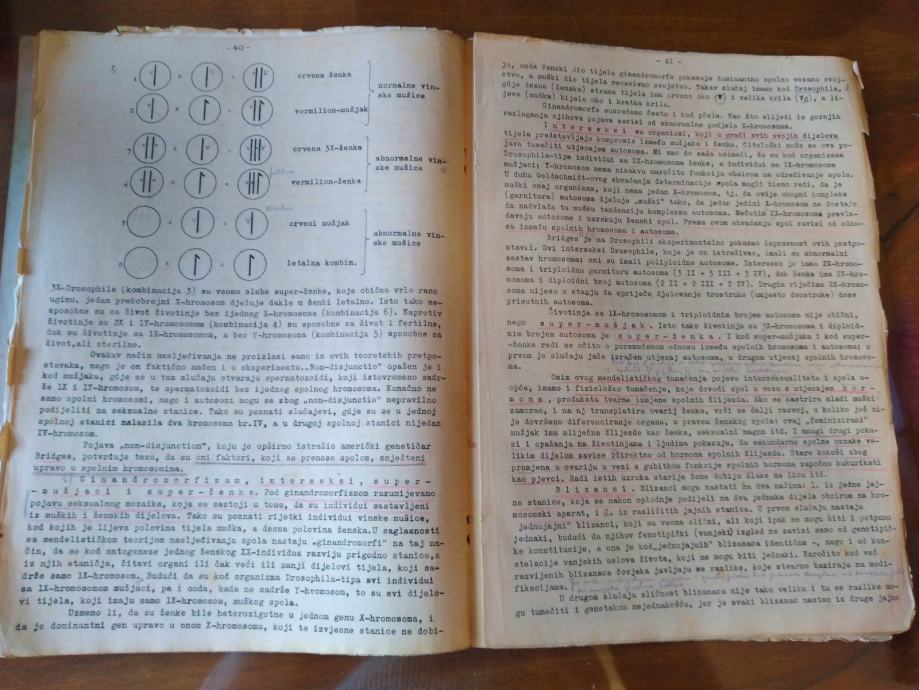 - 40 -
crvena ženka
normalne vin-
ske mušice
vermilion-mužjak
crvena 3X-ženka
abnormalne vin-
ske mušice
vermilion-ženka
crveni mužjak
abnormalne vin-
ske mušice
letalna kombin.
3X-Drosophile (kombinacija 3) su veoma slabe super-ženke, koje obično vrlo rano
uginu. jedan prekobrojni X-hromosom djeluje dakle u ženki letalno. Isto tako ne-
sposobne su za život životinje bez ijednog X-hromosoma (kombinacija 6). Naprotiv
životinje sa 2X i 1Y-hromosomom (kombinacija 4) su sposobne za život i fertilne,
dok su životinje sa 1X-hromosomom, a bez Y-hromosoma (kombinacija 5) sposobne za
život,ali sterilne.
Ovakav način nasljeđivanja ne proizlazi samo iz ovih teoretskih pretpo-
stavaka, nego je on faktično nađen i u eksperimentu.„Non-disjunctio" opažen je i
kod mužjaka, gdje se u tom slučaju stvaraju spermatozoidi, koji istovremeno sadr-
že 1X i 1Y-hromosom, te spermatozoidi bez ijednog spolnog hromosoma. Konačno ne
samo spolni hromosomi, nego i autosomi mogu se zbog „non-disjunctio" nepravilno
podijeliti na seksualne stanice. Tako su poznati slučajevi, gdje su se u jednoj
spolnoj stanici nalazila dva hromosoma br.IV, a u drugoj spolnoj stanici nijedan
IV-hromosom.
Pojava „non-disjunction", koju je opširno istražio američki genetičar
Bridges, potvrđuje tezu, da su oni faktori, koji se prenose spolom, smješteni
upravo u spolnim hromosomima.
6) Ginandromorfizam, interseksi, super-
-mužjaci i super-ženke. Pod ginandromorfizmom razumijevamo
pojavu seksualnog mozaika, koja se sastoji u tome, da su individui sastavljeni
iz muških i ženskih dijelova. Tako su poznati rijetki individui vinske mušice,
kod kojih je lijeva polovina tijela muška, a desna polovina ženska.U saglasnosti
sa mendelističkom teorijom nasljeđivanja spola nastaju „ginandromorfi" na taj na-
čin, da se kod ontogeneze jednog ženskog XX-individua razviju prigodno stanice,a
iz njih staničja, čitavi organi ili čak veći ili manji dijelovi tijela, koji sa-
drže samo 1X-hromosom. Budući da su kod organizma Drosophila-tipa svi individui
sa 1X-hromosomom mužjaci, pa i onda, kada ne sadrže Y-hromosom, to su svi dijelo-
vi tijela, koji imaju samo 1X-hromosom, muškog spola.
Uzmemo li, da su ženke bile heterozigotne u jednom genu X-hromosoma, i
da je dominantni gen upravo u onom X-hromosomu, koji te izvjesne stanice ne dobi-
- 41 -
ju, onda ženski dio tijela ginandromorfa pokazuje dominantno spolno vezano svoj-
stvo, a muški dio tijela recesivno svojstvo. Takav slučaj imamo kod Drosophile,
gdje desna (ženska) strana tijela ima crveno oko (W) i velika krila (Vg), a li-
jeva (muška) bijelo oko i kratka krila.
Ginandromorfe susrećemo često i kod pčela. Kao što slijedi iz gornjih
razlaganja njihova pojava zavisi od abnormalne podjele X-hromosoma.
Interseksi su organizmi, koji u građi svih svojih dijelova
tijela predstavljaju kompromis između mužjaka i ženke. Citološki može se ova po-
java tumačiti utjecajem autosoma. Mi smo do sada uzimali, da su kod organizama
Drosophila-tipa individui sa 2X-hromosoma ženke, a individui sa 1X-hromosoma
mužjaci; Y-hromosom nema nikakvu naročitu funkciju obzirom na određivanje spola.
U duhu Goldschmidt-ovog shvaćanja determinacije spola mogli bismo reći, da je
muški onaj organizam, koji nema jedan X-hromosom, tj. da ovdje ukupni kompleks
(garnitura) autosoma djeluje „muški" tako, da jedan jedini X-hromosom ne dostaje
da nadvlada tu mušku tendenciju kompleksa autosoma. Međutim 2X-hromosoma prevla-
davaju autosome i uzrokuju ženski spol. Prema ovom shvaćanju spol zavisi od odno-
sa između spolnih hromosoma i autosoma.
Bridges je na Drosophili eksperimentalno pokazao ispravnost ovih pretpo-
stavki. Svi interseksi Drosophile, koje je on istraživao, imali su abnormalni
sastav hromosoma; oni su imali poliploidne autosome. Interseks je imao 2X-hromo-
soma i triploidnu garnituru autosoma (3 II + 3 III + 3 IV), dok ženka ima 2X-hro-
mosoma i diploidni broj autosoma (2 II + 2 III + 2 IV). Drugim riječima 2X-hromo-
soma nijesu u stanju da spriječe djelovanje trostruke (umjesto dvostruke) doze
prisutnih autosoma.
Životinja sa 1X-hromosomom i triploidnim brojem autosoma nije obični,
nego super-mužjak. Isto tako životinja sa 3X-hromosoma i diploid-
nim brojem autosoma je super-ženka. I kod super-mužjaka i kod super-
-ženke radi se očito o poremećenom odnosu između spolnih hromosoma i autosoma; u
prvom je slučaju jače izražen utjecaj autosoma, u drugom utjecaj spolnih hromoso-
ma.
Osim ovog mendelističkog tumačenja pojave interseksualiteta i spola u-
opće, imamo i fiziološko tumačenje, koje dovodi spol u vezu s utjecajem hor-
mona, produkata tvarne izmjene spolnih žlijezda. Ako se kastrira mladi muški
zamorac, i na nj transplatira ovarij ženke, vrši se dalji razvoj, u koliko još ni-
je dovršeno diferenciranje organa, u pravcu ženskog spola: ovaj „feminisirani"
mužjak ima mliječne žlijezde kao ženka, seksualni nagon itd. I mnogi drugi poku-
si i opažanja na životinjama i ljudima pokazuju, da sekundarne spolne oznake ve-
likim dijelom zavise direktno od hormona spolnih žlijezda. Stare kokoši zbog
promjena u ovariju u vezi s gubitkom funkcije spolnih hormona započnu kukurikati
kao pjevci. Radi istih uzroka starije žene dobiju dlake na licu itd.
Blizanci. Blizanci mogu nastati na dva načina: 1. iz jedne jaj-
jne stanice, koja se nakon oplodnje podijeli na dva jednaka dijela obzirom na hro-
mosomski aparat, i 2. iz različitih jajnih stanica. U prvom slučaju nastaju
„jednojajni" blizanci, koji su veoma slični, ali koji ipak ne mogu biti i potpuno
jednaki, budući da njihov fenotipički (vanjski) izgled ne zavisi samo od genotipič-
ke konstitucije, a ona je kod„jednojajnih" blizanaca identična -, nego i od kon-
stelacije vanjskih uslova života, koji ne mogu biti jednaki. Naročito kod već
razvijenih blizanaca čovjeka javljaju se razlike, koje stvarno baziraju na modi-
fikacijama.
U drugom slučaju sličnost blizanaca nije tako velika i tu se razlike mo-
gu tumačiti i genetskom nejednakošću, jer je svaki blizanac nastao iz druge jajne